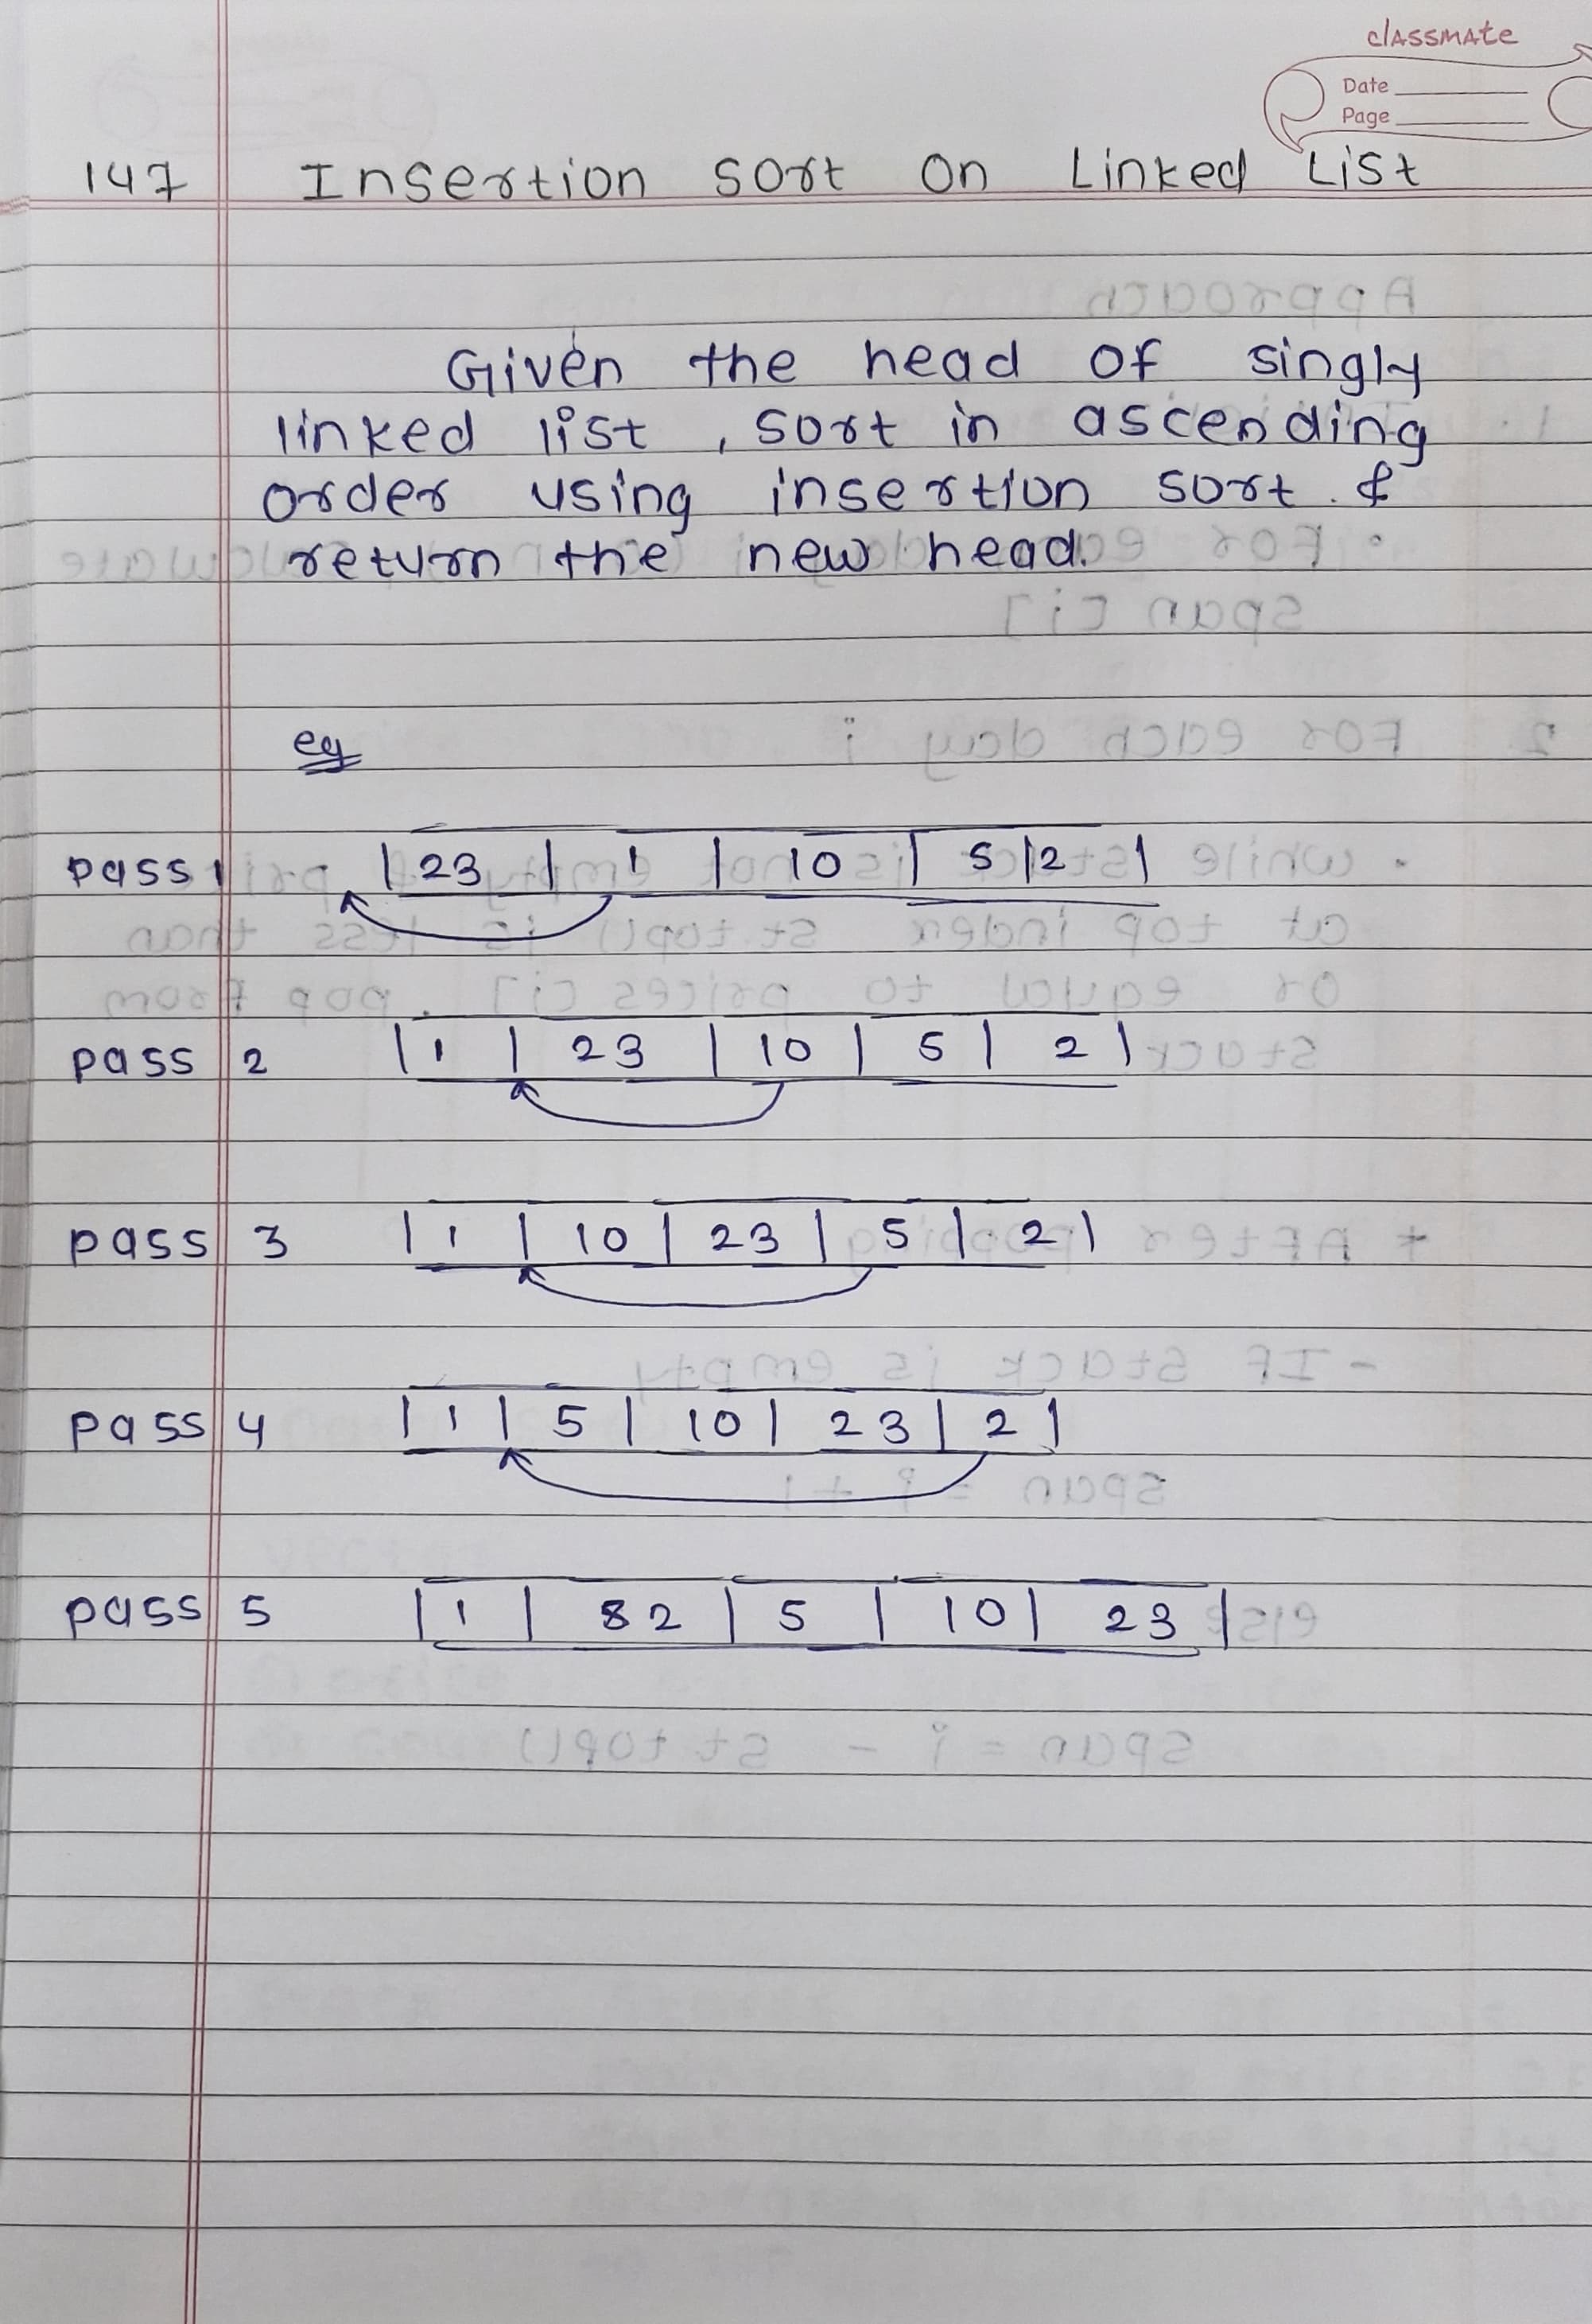 classmate
Date
Page
147 Insertion sort on Linked List
Given the head of singly
linked list , sort in ascending
order using insertion sort . &
return the new head.
eg
pass 1 | 23 | 1 | 10 | 5 | 2 |
pass 2 | 1 | 23 | 10 | 5 | 2 |
pass 3 | 1 | 10 | 23 | 5 | 2 |
pass 4 | 1 | 5 | 10 | 23 | 2 |
pass 5 | 1 | 82 | 5 | 10 | 23 |